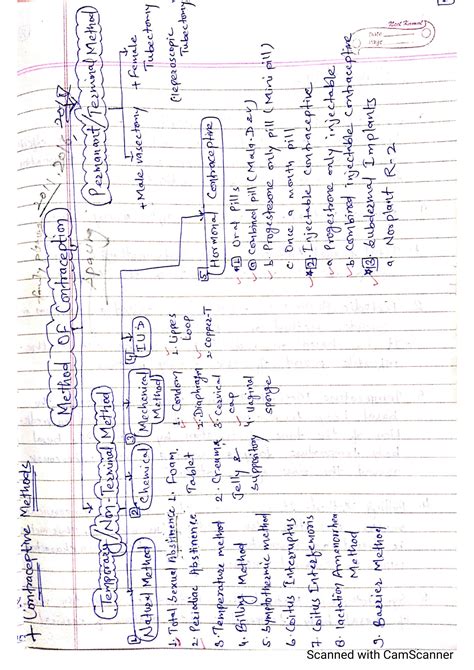 + Contraceptive Methods
family planning 2011, 2016, 2018
Method Of Contraception
Spacing
Temporary/Non-Terminal Method
Permanant/Terminal Method
+ Male vasectomy
+ Female Tubectomy
(leperoscopic Tubectomy)
1 Natural Method
1. Total Sexual Abstinence
2. Periodiac Abstinence
3. Temperature method
4. Billing Method
5. Symptothermic method
6. Coitus Interruptus
7. Coitus Interfenosis
8. lactation Amenorrhea Method
9. Barrier Method
2 Chemical
1. Foam,
2. Creams
Jelly &
Suppository
3 Mechemical Method
1. Condom
2. Diaphragm
3. Cervical cap
4. Vaginal sponge
4 IUD
1. Lippes Loop
2. Copper-T
5 Hormonal Contraceptive
*1 Oral Pills
a Combined pill (Mala-Dev)
b. Progesterone only pill (Mini pill)
c Once a month pill
*2. Injectable Contraceptive
a Progestrone only injectable
b Combined injectable Contraceptive
*3. Subdermal Implants
a. Norplant R-2
Neel Kamal
Date
Page
Scanned with CamScanner